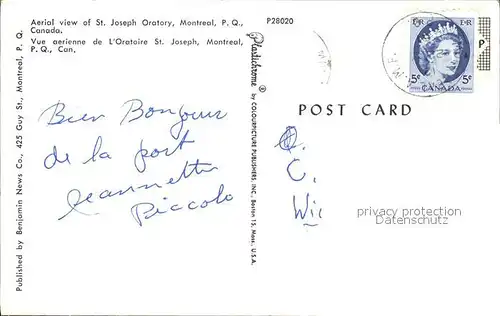 Aerial view of St. Joseph Oratory, Montreal, P. Q.,
Canada.
Vue aerienne de L'Oratoire St. Joseph, Montreal,
P. Q., Can,
P28020
Published by Benjamin News Co., 425 Guy St., Montreal, P. Q.
Bien Bonjour
de la part
Jeannette
Piccolo
Plastichrome ®
by COLOURPICTURE PUBLISHERS, INC., Boston 15, Mass., U.S.A.
POST CARD
E R E R
5c 5c
CANADA
P
C.
Wii
privacy protection
Datenschutz